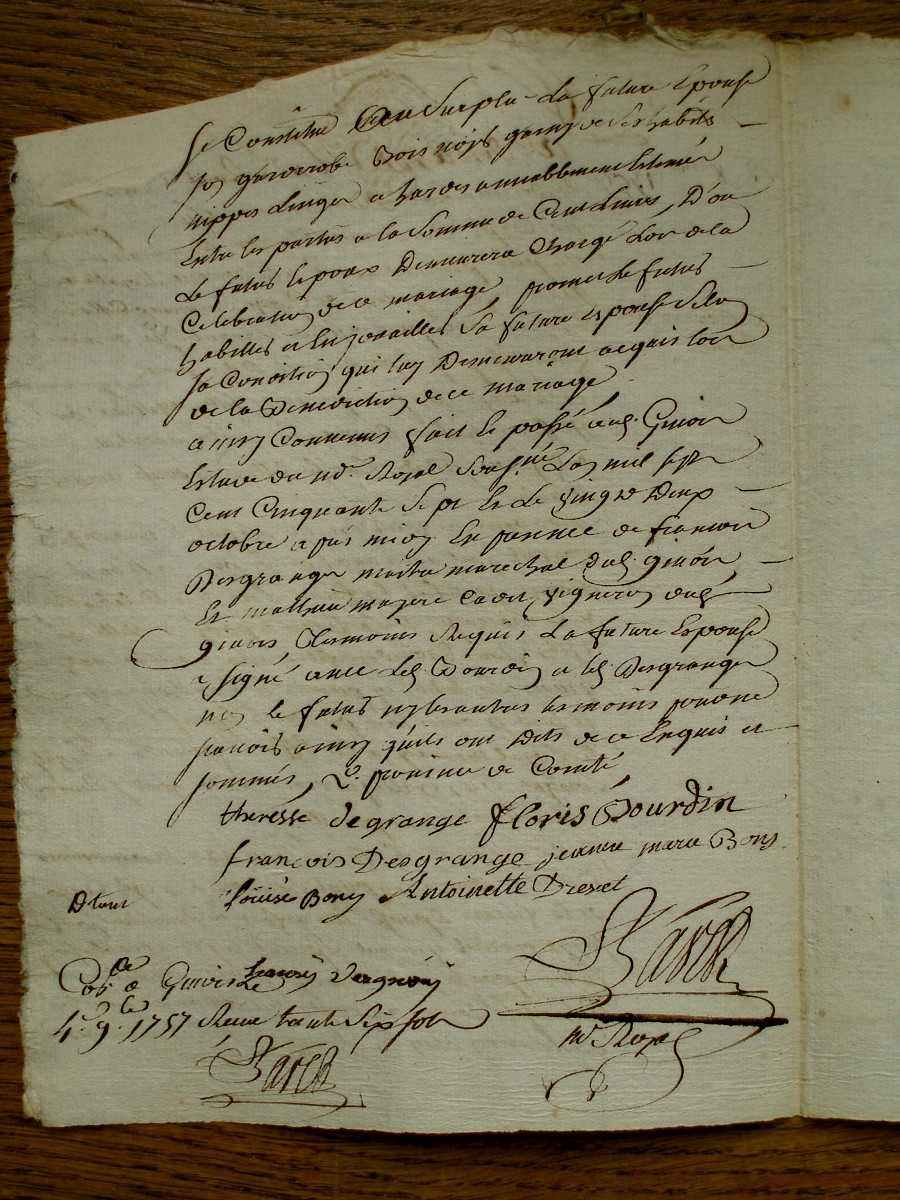 Se Constitue Au Surplu La future Epouse
son garderobe Bois noÿé garny de Ses habits
nippes Linges et hardes amiablement Estimés
Entre les parties a la Somme de Cent Livres, D'ou
Le futur Epoux Demeurera Chargé Lors de la
Celebration de ce mariage, promet Le futur
habiller et Enjoÿailler Sa future epouse Selon
Sa Condition qui luy Demeureront acquis lors
de la Benediction de ce mariage
ainsy Convenus fait et passé aud. Givors
Estude du no.re Royal Soussigné L'an mil sept
Cent Cinquante Sept Et Le Vingt Deux
octobre apres midy En presence de francois
Desgranges maitre marechal dud. givors
Et mathieu mazere Cadet vigneron dud.
givors, Tesmoins Requis La future Espouse
a signé avec Led. Bourdin et led. Desgranges
non le futur ny les autres tesmoins pour ne
Scavoir ainsy qu'ils ont Dits de ce Enquis et
sommés,
theresse degrange floris Bourdin
francois Desgrange jeanne marie Bony
loüise Bony Antoinette Drevet
Givors
4e 9bre 1757 Receu trente Sept sols
no.re Royal